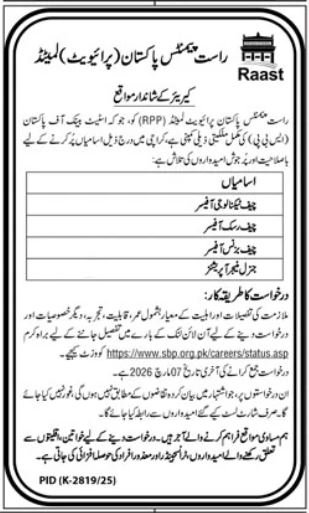 راست پیمنٹس پاکستان (پرائیویٹ) لمیٹڈ
Raast
کیریئر کے شاندار مواقع
راست پیمنٹس پاکستان پرائیویٹ لمیٹڈ (RPP) کو، جو کہ اسٹیٹ بینک آف پاکستان
(ایس بی پی) کی مکمل ملکیتی ذیلی کمپنی ہے، کراچی میں درج ذیل اسامیاں پُر کرنے کے لیے
باصلاحیت اور پُر جوش امیدواروں کی تلاش ہے:
اسامیاں
چیف ٹیکنالوجی آفیسر
چیف رسک آفیسر
چیف بزنس آفیسر
جنرل منیجر آپریشنز
درخواست کا طریقہ کار:
ملازمت کی تفصیلات اور اہلیت کے معیار بشمول عمر، قابلیت، تجربہ، دیگر خصوصیات اور
درخواست دینے کے لیے آن لائن لنک کے بارے میں تفصیل جاننے کے لیے براہ کرم
https://www.sbp.org.pk/careers/status.asp کو وزٹ کیجیے۔
درخواست جمع کرانے کی آخری تاریخ 07 مارچ 2026 ہے۔
ان درخواستوں پر، جو اشتہار میں بیان کردہ تقاضوں کے مطابق نہیں ہوں گی، غور نہیں کیا جائے
گا۔ صرف شارٹ لسٹ کیے گئے امیدواروں سے رابطہ کیا جائے گا۔
ہم مساوی مواقع فراہم کرنے والے آجر ہیں۔ درخواست دینے کے لیے خواتین، اقلیتوں سے
تعلق رکھنے والے امیدواروں، ٹرانسجینڈر اور معذور افراد کی حوصلہ افزائی کی جاتی ہے۔
PID (K-2819/25)